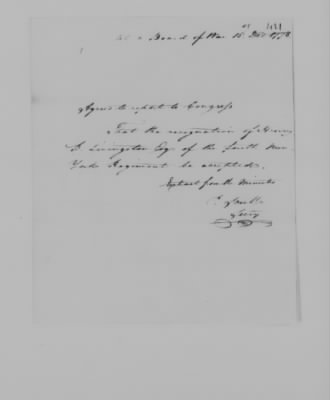 At a Board of War 18. Nov. 1778
Agreed to report to Congress
That the resignation of Henry
B. Livingston Esq. of the fourth New
York Regiment be accepted.
Extract from the Minutes
Secy